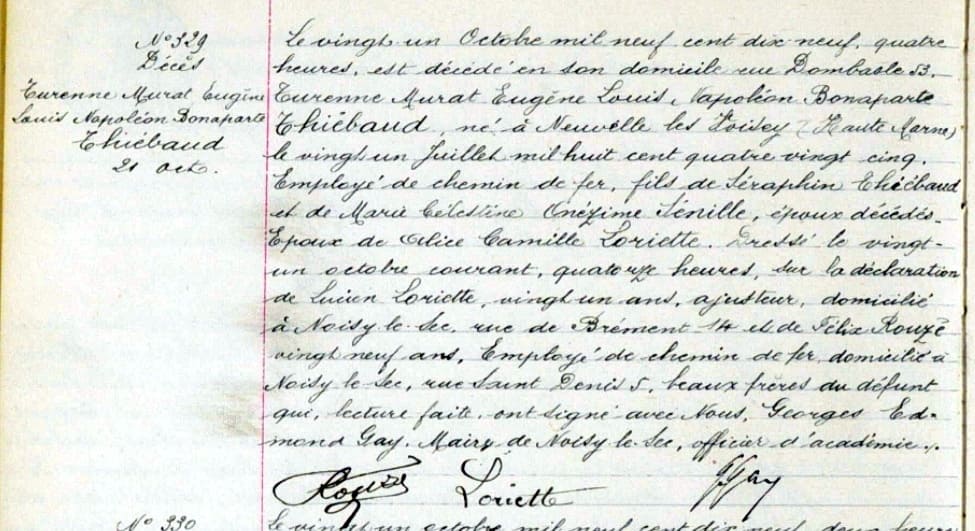 N° 329
Décès
Turenne Murat Eugène
Louis Napoléon Bonaparte
Thiébaud
21 oct.
Le vingt un Octobre mil neuf cent dix neuf, quatre
heures, est décédé en son domicile rue Dombasle 53.
Turenne Murat Eugène Louis, Napoléon Bonaparte
Thiébaud, né à Neuvelle les Voisey (Haute Marne)
le vingt un Juillet mil huit cent quatre vingt cinq.
Employé de chemin de fer, fils de Séraphin Thiébaud
et de Marie Célestine Onézime Sénille, époux décédés.
Epoux de Alice Camille Loriette. Dressé le vingt-
un octobre courant, quatorze heures, sur la déclaration
de Lucien Loriette, vingt un ans, ajusteur, domicilié
à Noisy-le-Sec, rue de Brément 14 et de Félix Rouzé
vingt neuf ans, Employé de chemin de fer, domicilié à
Noisy-le-Sec, rue Saint Denis 5, beaux frères du défunt
qui, lecture faite, ont signé avec Nous, Georges Ed-
mond Gay, Maire de Noisy-le-Sec, officier d'académie.
Rouzé Loriette GGay
N° 330
Le vingt un octobre mil neuf cent dix neuf, deux heures